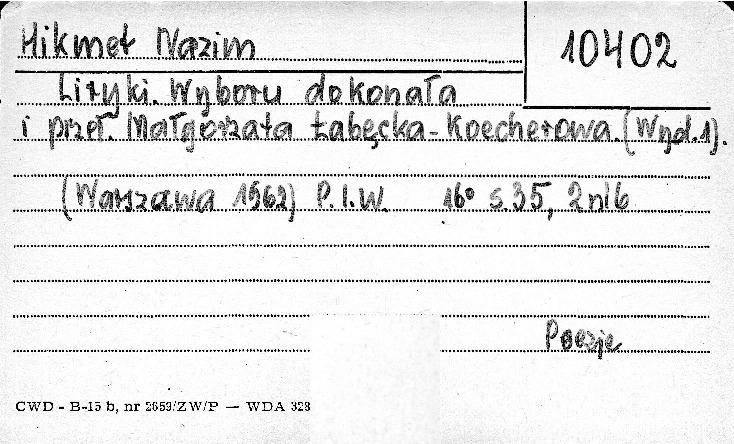 Hikmet Nazim
10402
Liryki. Wyboru dokonała
i przeł. Małgorzata Łabęcka-Koecherowa. (Wyd.1).
(Warszawa 1962) P.I.W. 16° s.35, 2nlb
Poezje
CWD - B-15 b, nr 2659/ZW/P — WDA 328